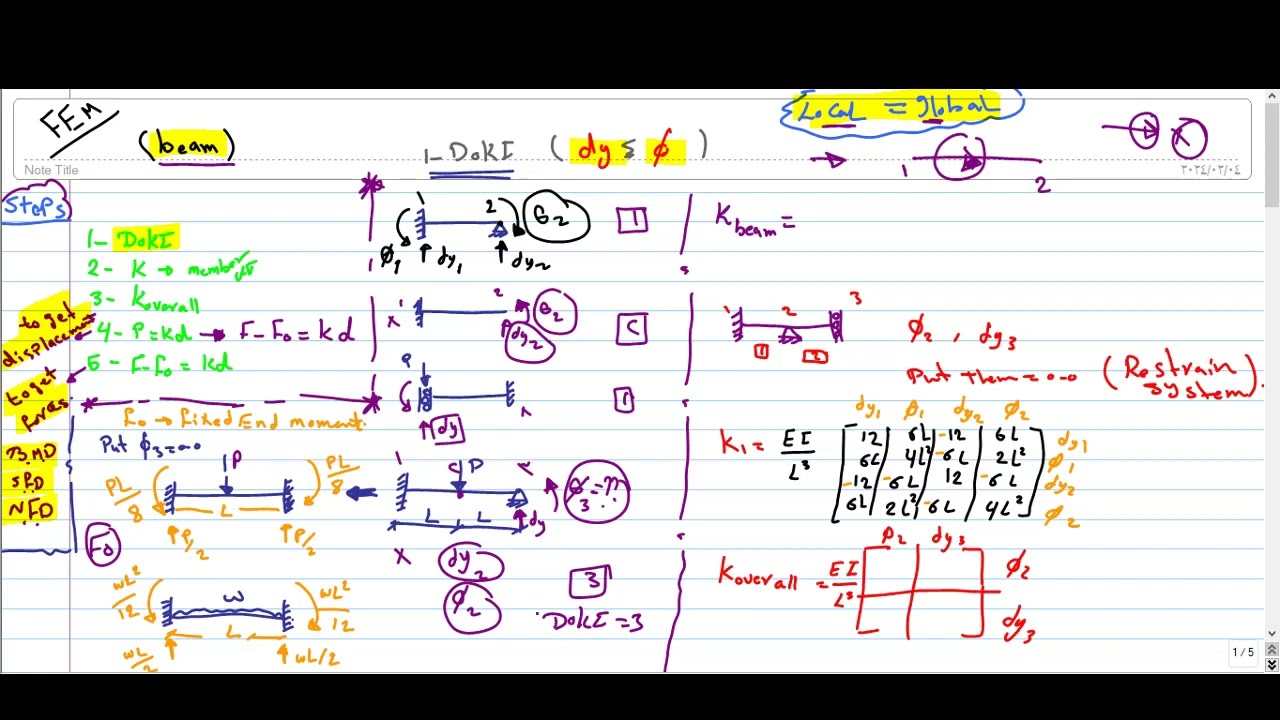 FEM
(beam)
1-DOKI ( dy & φ )
Local = global
1 2
Note Title
٢٠٢٤/٠٢/٠٤
Steps
1- DOKI
2- K → member
3- Koverall
4- P=Kd → F-Fo = Kd
5- F-Fo = Kd
to get
displacement
to get
forces
B.MD
S.FD
N.FD
Fo → Fixed End moment
Put φ3=0.0
PL/8
P
PL/8
L
P/2
P/2
Fo
wL²/12
w
wL²/12
L
wL/2
wL/2
1 2
θ2
φ1 dy1 dy2
1
1 2
θ2
dy2
dy
1
P
L L
φ3=??
dy
dy2
φ2
3
DOKI=3
K beam =
1 2 3
1 2
φ2 , dy3
Put them = 0.0
(Restrain
system)
dy1 φ1 dy2 φ2
K1 = EI/L³
12 6L -12 6L dy1
6L 4L² -6L 2L² φ1
-12 -6L 12 -6L dy2
6L 2L² -6L 4L² φ2
φ2 dy3
Koverall = EI/L³
φ2
dy3
1 / 5